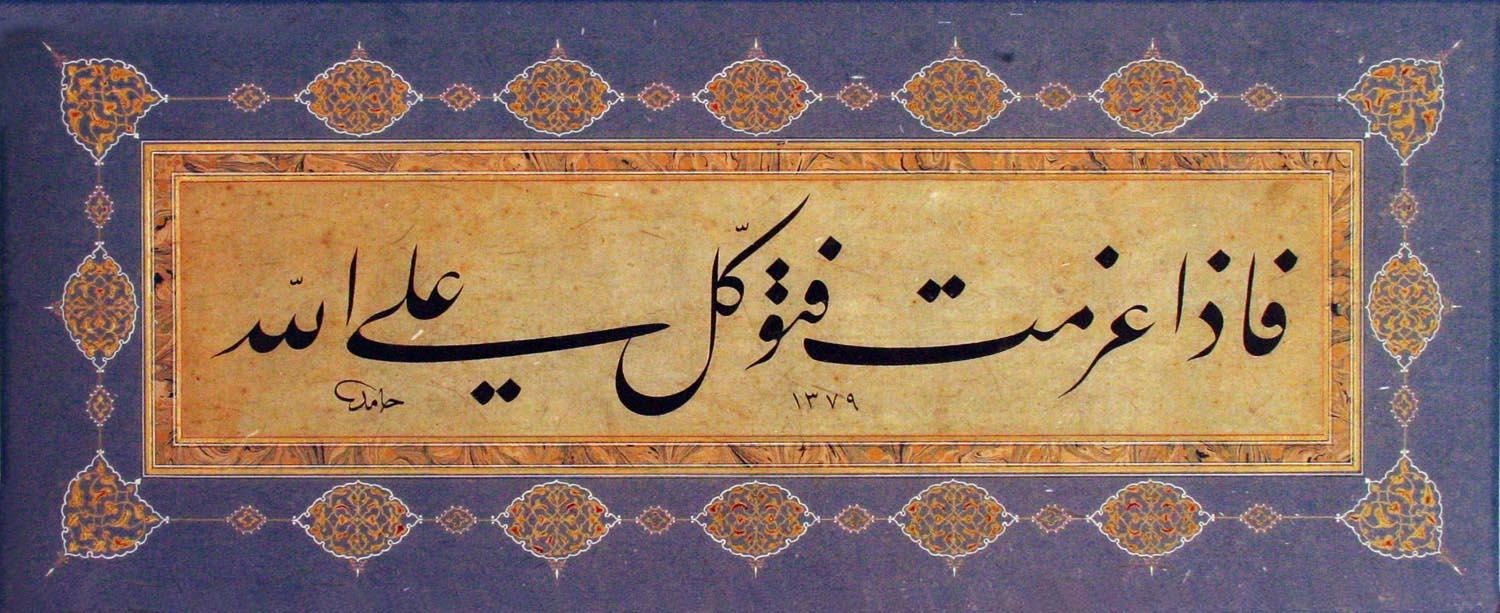 فاذا عزمت فتوكّل على اللّه
١٣٧٩
حامد